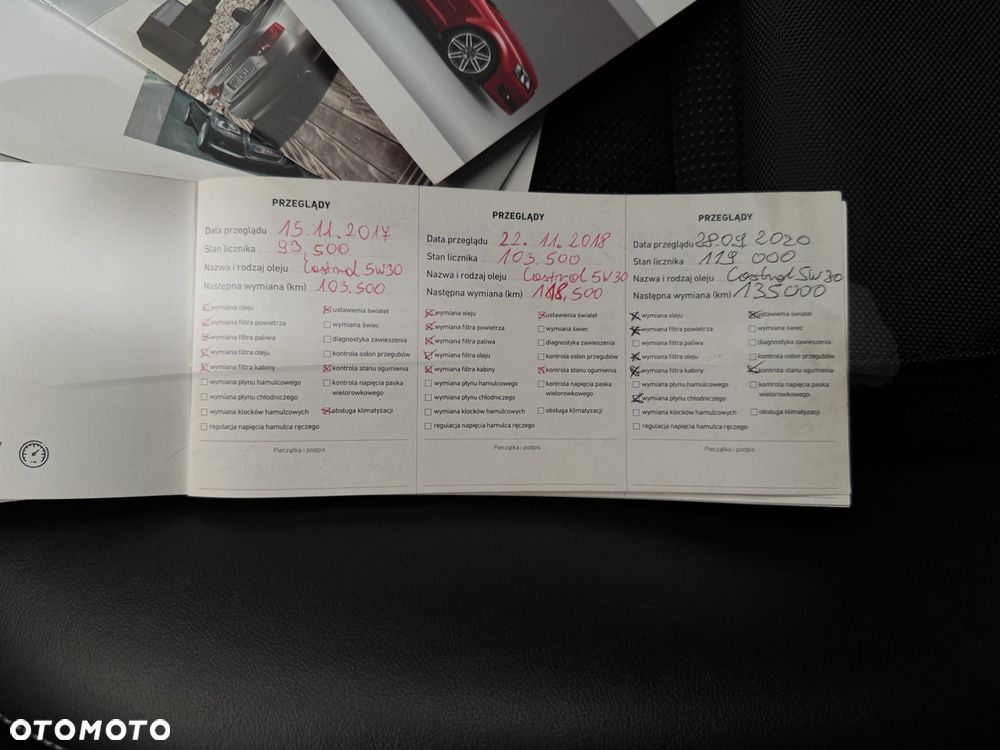 PRZEGLĄDY
Data przeglądu 15.11.2017
Stan licznika 93,500
Nazwa i rodzaj oleju Castrol 5W30
Następna wymiana (km) 103,500
wymiana oleju
wymiana filtra powietrza
wymiana filtra paliwa
wymiana filtra oleju
wymiana filtra kabiny
wymiana płynu hamulcowego
wymiana płynu chłodniczego
wymiana klocków hamulcowych
regulacja napięcia hamulca ręczego
ustawienia świateł
wymiana świec
diagnostyka zawieszenia
kontrola osłon przegubów
kontrola stanu ogumienia
kontrola napięcia paska
wielorowkowego
obsługa klimatyzacji
Pieczątka i podpis
PRZEGLĄDY
Data przeglądu 22.11.2018
Stan licznika 103.500
Nazwa i rodzaj oleju Castrol 5W30
Następna wymiana (km) 118,500
wymiana oleju
wymiana filtra powietrza
wymiana filtra paliwa
wymiana filtra oleju
wymiana filtra kabiny
wymiana płynu hamulcowego
wymiana płynu chłodniczego
wymiana klocków hamulcowych
regulacja napięcia hamulca ręczego
ustawienia świateł
wymiana świec
diagnostyka zawieszenia
kontrola osłon przegubów
kontrola stanu ogumienia
kontrola napięcia paska
wielorowkowego
obsługa klimatyzacji
Pieczątka i podpis
PRZEGLĄDY
Data przeglądu 28.09 2020
Stan licznika 119 000
Nazwa i rodzaj oleju Castrol 5W30
Następna wymiana (km) 135000
wymiana oleju
wymiana filtra powietrza
wymiana filtra paliwa
wymiana filtra oleju
wymiana filtra kabiny
wymiana płynu hamulcowego
wymiana płynu chłodniczego
wymiana klocków hamulcowych
regulacja napięcia hamulca ręczego
ustawienia świateł
wymiana świec
diagnostyka zawieszenia
kontrola osłon przegubów
kontrola stanu ogumienia
kontrola napięcia paska
wielorowkowego
obsługa klimatyzacji
Pieczątka i podpis
OTOMOTO